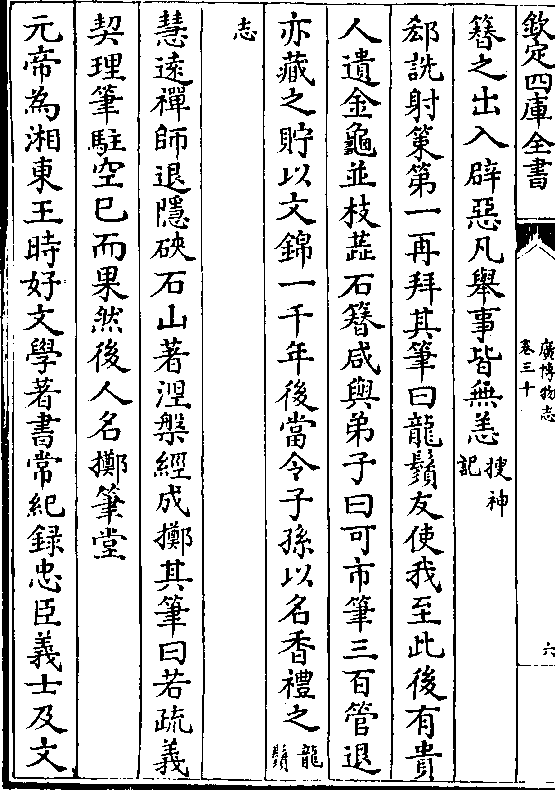 欽定四庫全書
廣博物志
卷三十
六
簮之出入辟惡凡舉事皆無恙搜神
記
郄詵射策第一再拜其筆曰龍鬚友使我至此後有貴
人遺金龜並枝蘂石簮咸與弟子曰可市筆三百管退
亦藏之貯以文錦一千年後當令子孫以名香禮之龍
鬚
志
慧逺禪師退隱硤石山著涅槃經成擲其筆曰若疏義
契理筆駐空已而果然後人名擲筆堂
元帝為湘東王時好文學著書常紀録忠臣義士及文